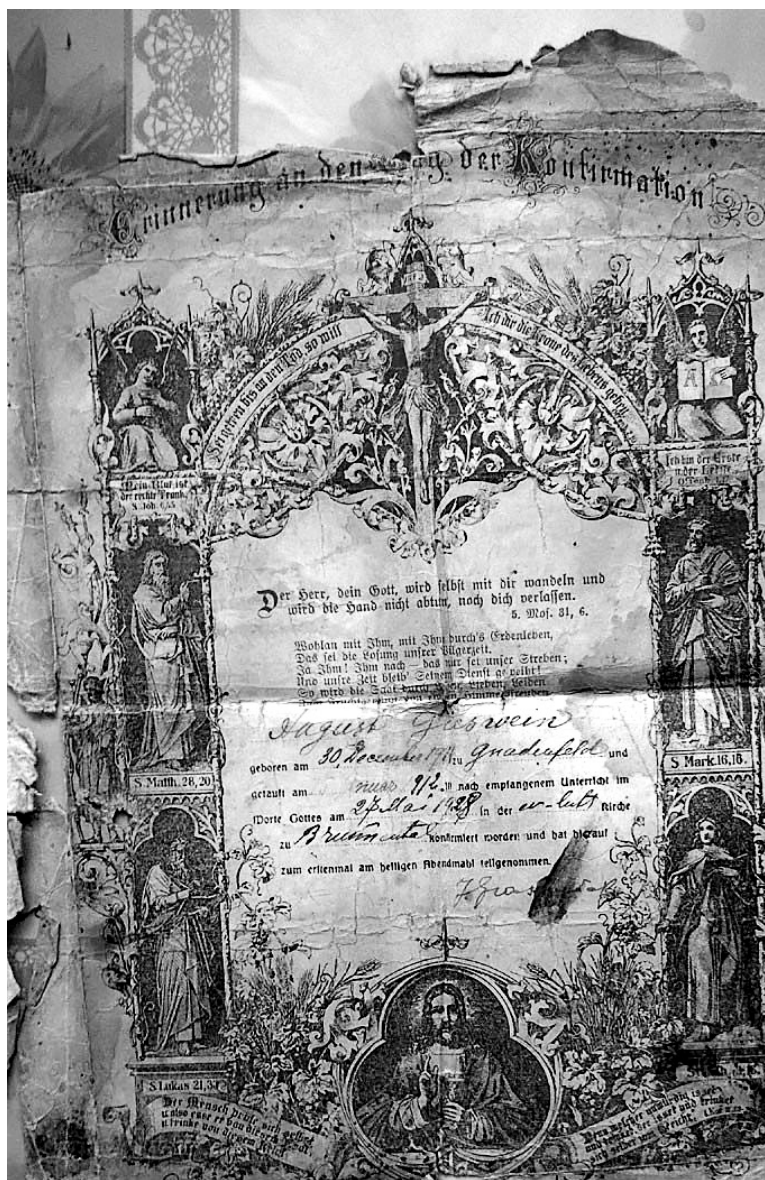 Erinnerung an den Tag der Konfirmation
Sei getreu bis in den Tod, so will
Ich dir die Krone des Lebens geben.
Mein Blut ist
der rechte Trank.
S. Joh. 6,55
Ich bin der Erste
u. der Letzte
Der Herr, dein Gott, wird selbst mit dir wandeln und
wird die Hand nicht abtun, noch dich verlassen.
5. Mos. 31, 6.
Wohlan mit Ihm, mit Ihm durch's Erdenleben,
Das sei die Losung unsrer Pilgerzeit.
Ja Ihm! Ihm nach – das nur sei unser Streben;
Und unsre Zeit bleib' Seinem Dienst geweiht!
So wird die Saat durch Lieben, Leben
August Gieswein
geboren am 30. December 1911 zu Gnadenfeld und
getauft am 1912 nach empfangenem Unterricht im
Worte Gottes am 27 Mai 1928 in der ev-luth Kirche
zu Brunnental konfirmiert worden und hat hierauf
zum erstenmal am heiligen Abendmahl teilgenommen.
S. Matth. 28, 20
S. Mark. 16, 16.
S. Lukas 21, 34
Der Mensch prüfe sich selbst
u. also esse er von diesem Brot
u. trinke von diesem Kelch
Denn welcher unwürdig isset
und trinket, der isset und trinket
sich selber zum Gericht.